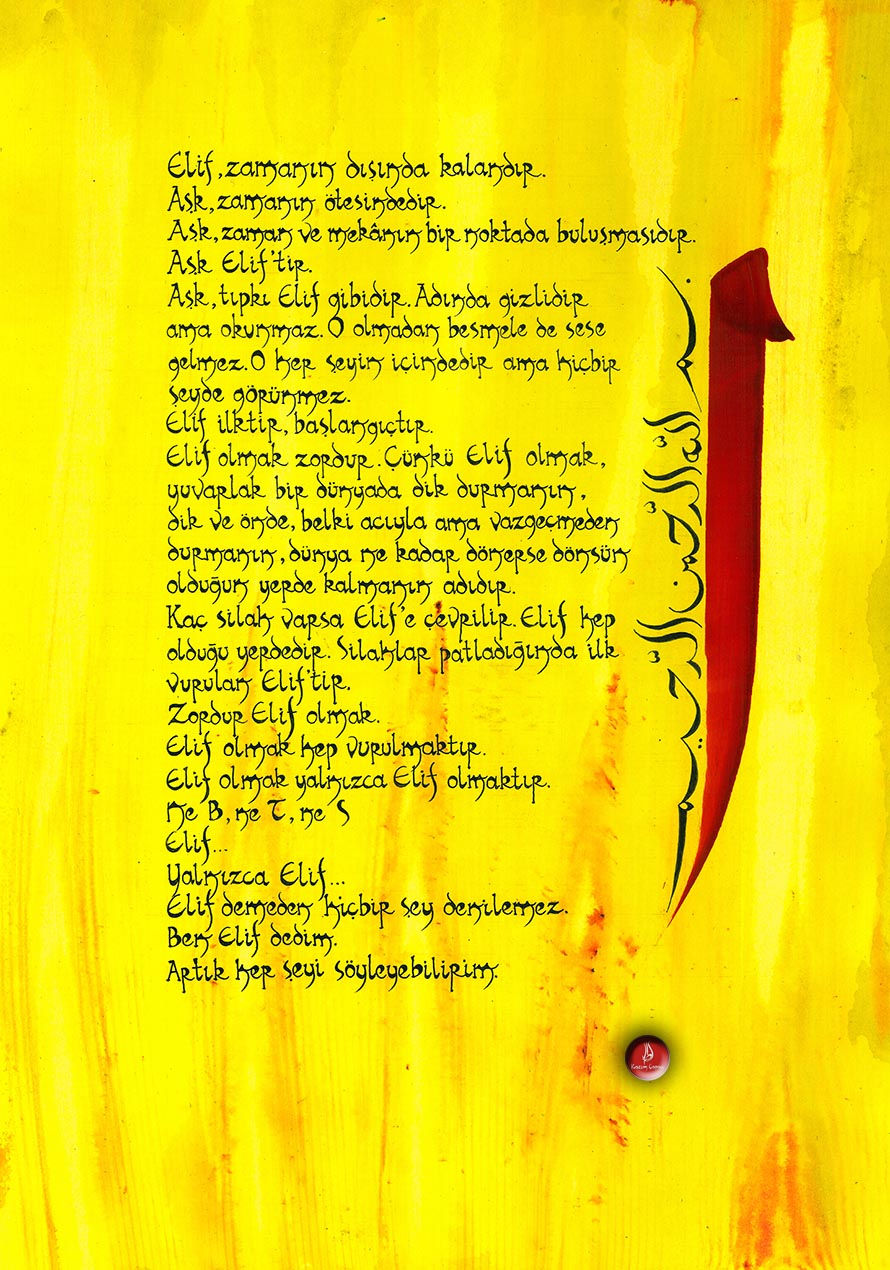 Elif, zamanın dışında kalandır.
Aşk, zamanın ötesindedir.
Aşk, zaman ve mekânın bir noktada buluşmasıdır.
Aşk Elif'tir.
Aşk, tıpkı Elif gibidir. Adında gizlidir
ama okunmaz. O olmadan besmele de sese
gelmez. O her şeyin içindedir ama hiçbir
şeyde görünmez.
Elif ilktir, başlangıçtır.
Elif olmak zordur. Çünkü Elif olmak,
yuvarlak bir dünyada dik durmanın,
dik ve önde, belki acıyla ama vazgeçmeden
durmanın, dünya ne kadar dönerse dönsün
olduğun yerde kalmanın adıdır.
Kaç silah varsa Elif'e çevrilir. Elif hep
olduğu yerdedir. Silahlar patladığında ilk
vurulan Elif'tir.
Zordur Elif olmak.
Elif olmak hep vurulmaktır.
Elif olmak yalnızca Elif olmaktır.
Ne B, ne T, ne S
Elif...
Yalnızca Elif...
Elif demeden hiçbir şey denilemez.
Ben Elif dedim.
Artık her şeyi söyleyebilirim.
ا
بسم الله الرحمن الرحيم